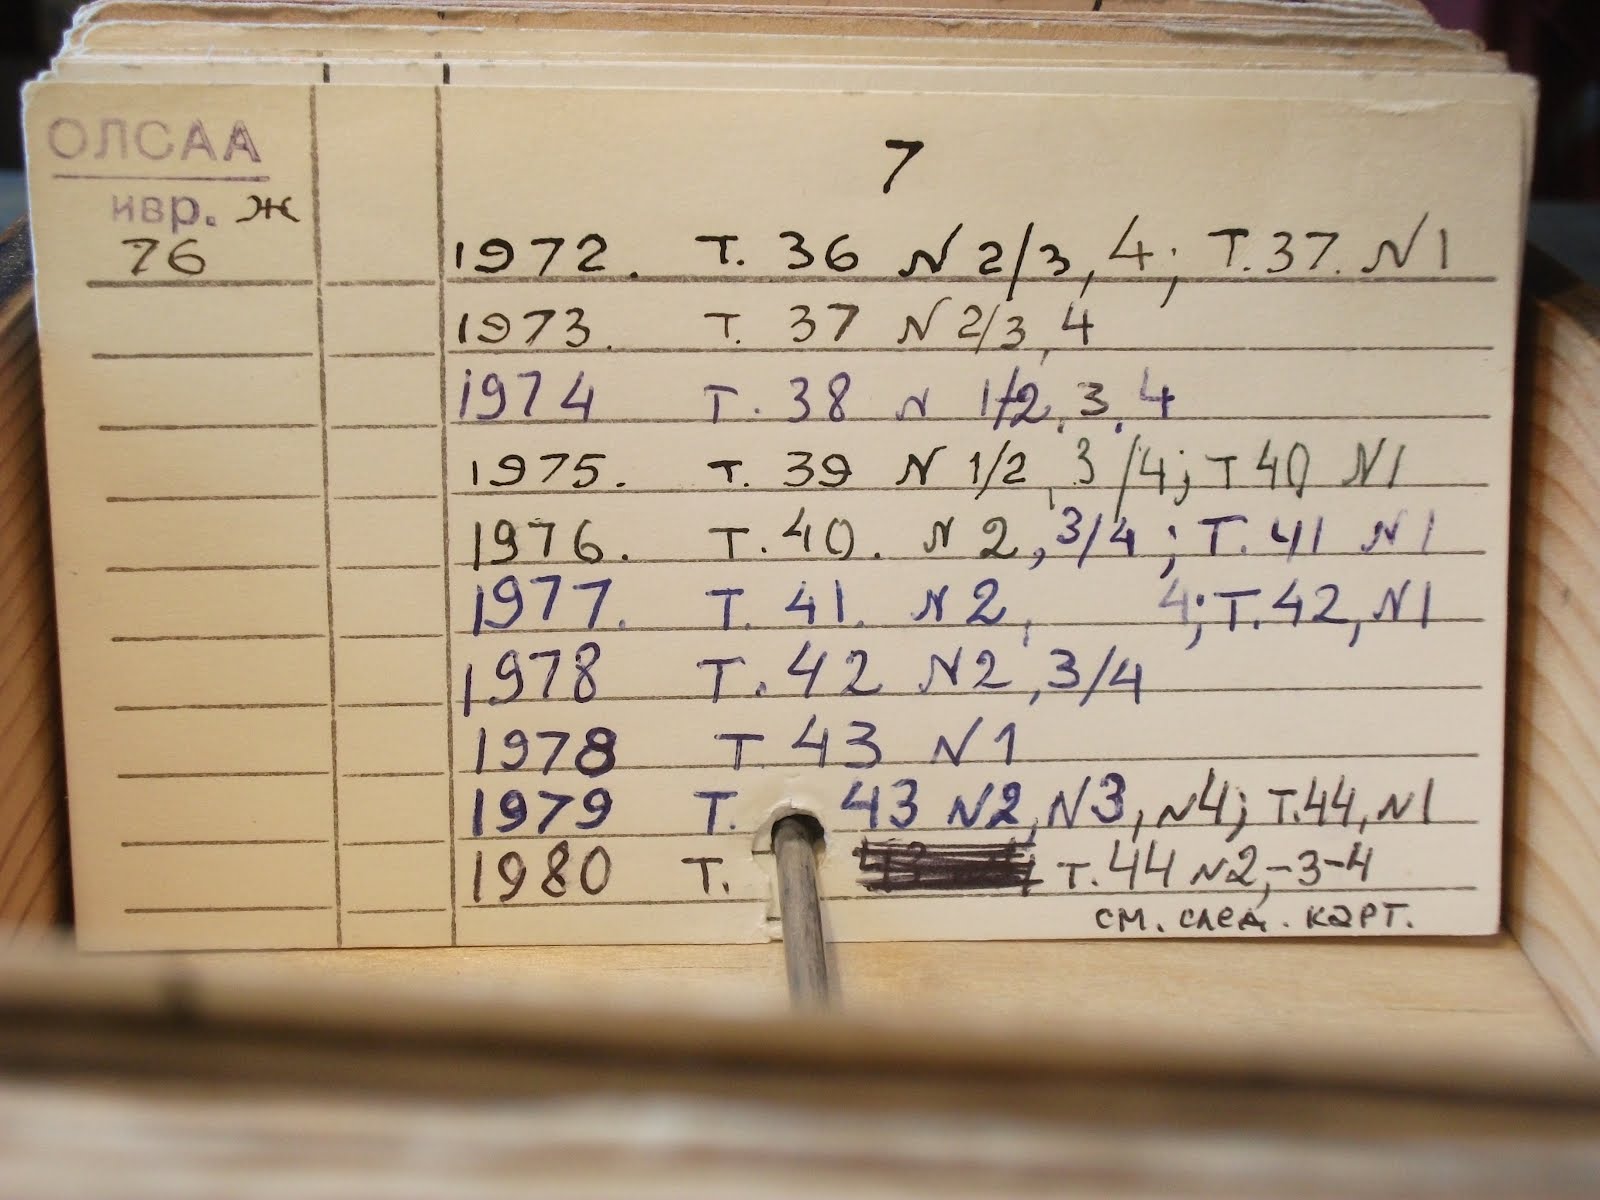 ОЛСАА
ивр. ж
76
7
1972. Т. 36 N 2/3, 4; Т. 37. N 1
1973. Т. 37 N 2/3, 4
1974 Т. 38 N 1/2, 3, 4
1975. Т. 39 N 1/2, 3/4; Т 40 N 1
1976. Т. 40. N 2, 3/4; Т. 41 N 1
1977. Т. 41. N 2, 4; Т. 42, N 1
1978 Т. 42 N 2, 3/4
1978 Т. 43 N 1
1979 Т. 43 N2, N3, N4; Т.44, N1
1980 Т. Т. 44 N2,-3-4
см. след. карт.